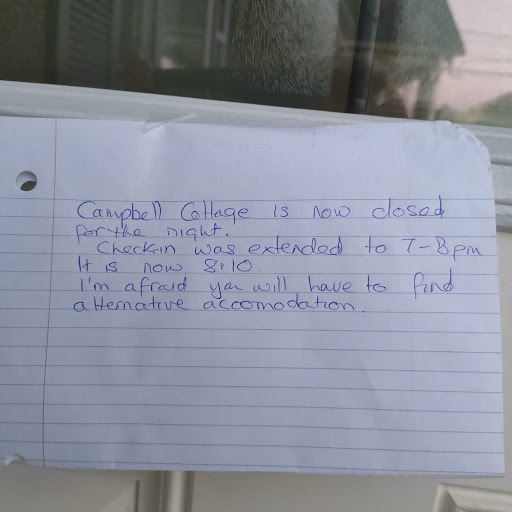 Campbell Cottage is now closed
for the night.
Check-in was extended to 7-8pm
It is now 8:10.
I'm afraid you will have to find
alternative accomodation.